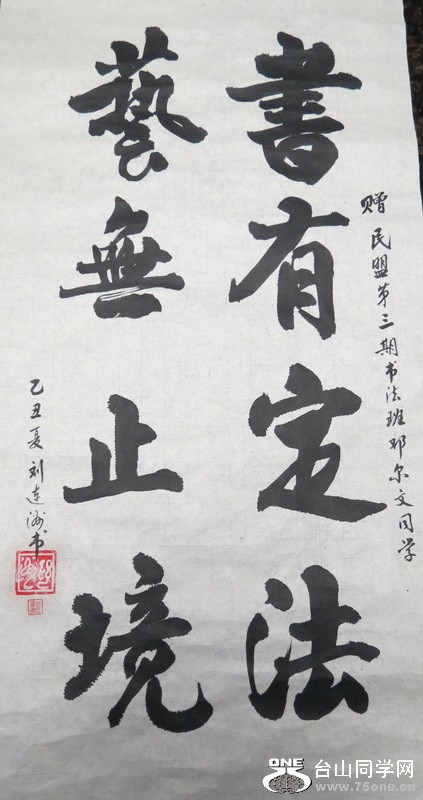 書有定法
藝無止境
赠民盟第三期书法班邓尔文同学
乙丑夏刘连洲书
ONE
台山同学网
www.75one.cn